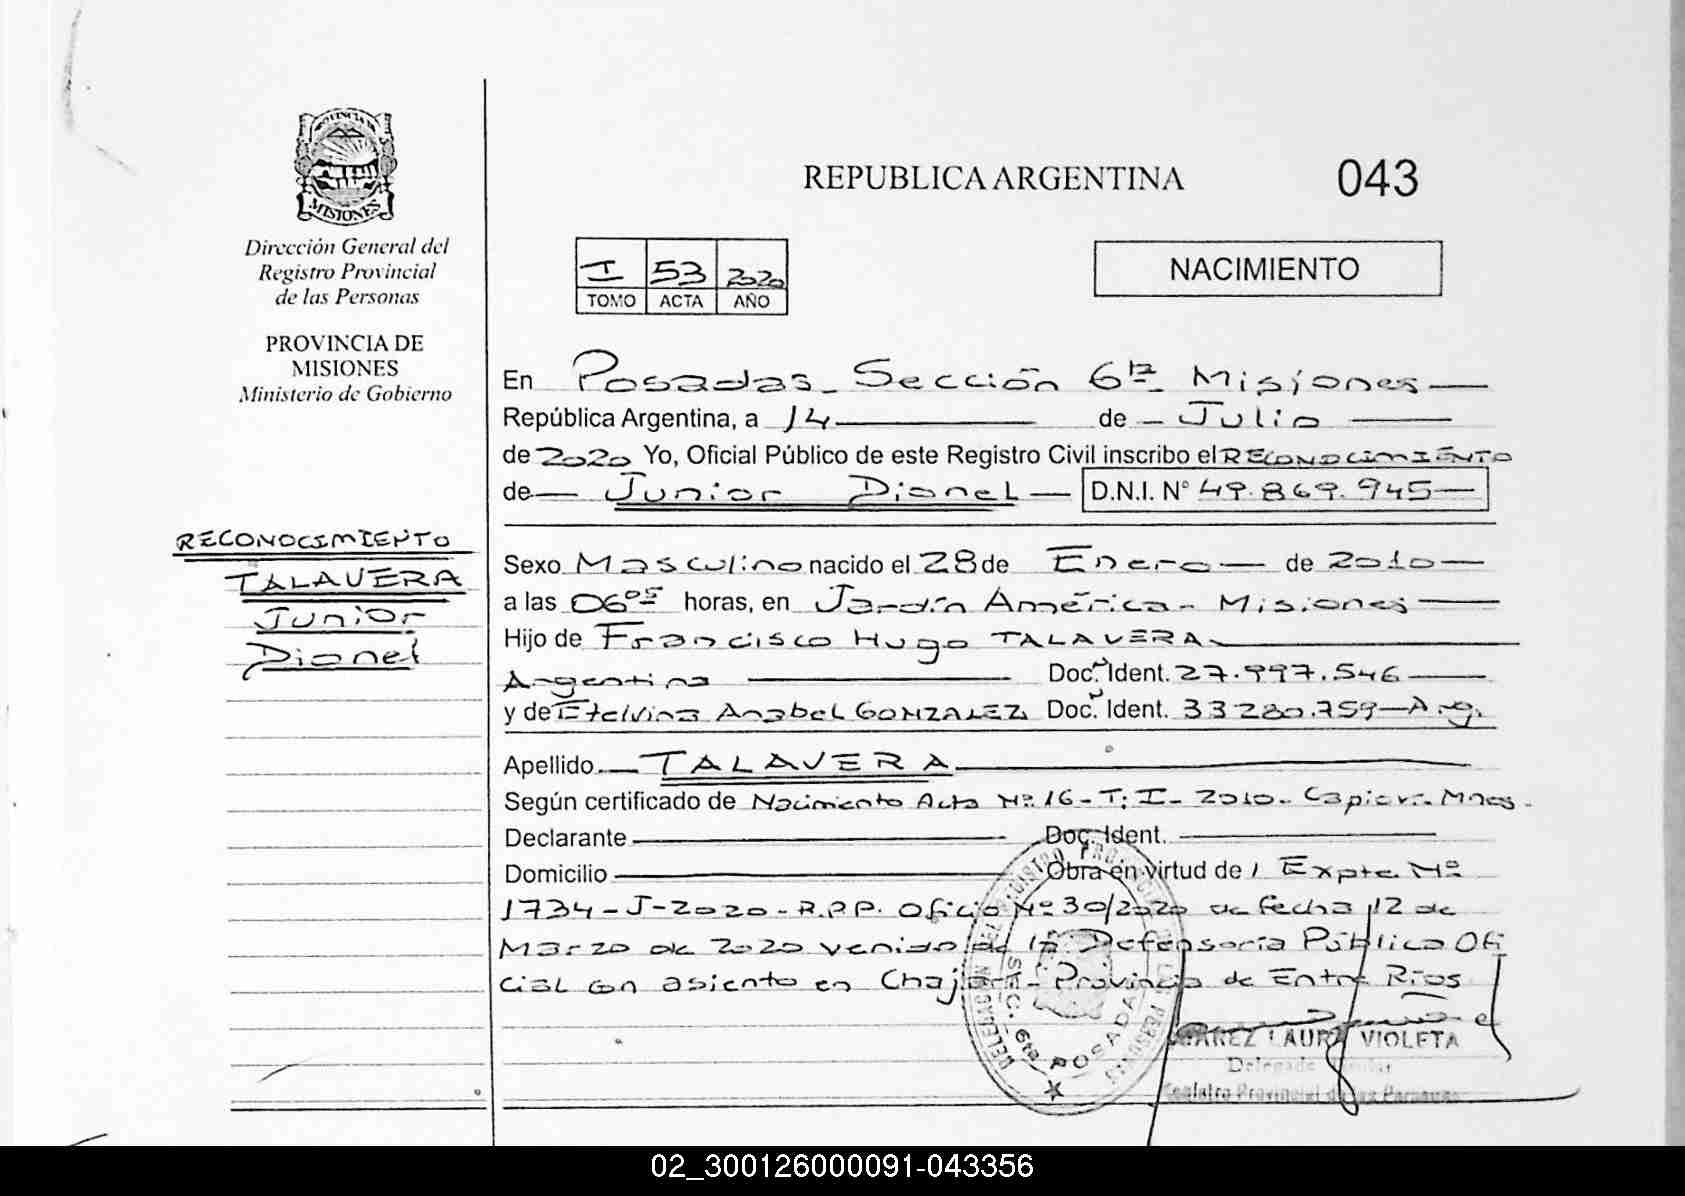 PROVINCIA DE
MISIONES
Dirección General del
Registro Provincial
de las Personas
PROVINCIA DE
MISIONES
Ministerio de Gobierno
RECONOCIMIENTO
TALAVERA
Junior
Dionel
REPUBLICA ARGENTINA 043
I 53 2020
TOMO ACTA AÑO
NACIMIENTO
En Posadas - Sección 6ta Misiones
República Argentina, a 14 de Julio
de 2020 Yo, Oficial Público de este Registro Civil inscribo el RECONOCIMIENTO
de Junior Dionel D.N.I. N° 49.869.945
Sexo Masculino nacido el 28 de Enero de 2010
a las 06 05 horas, en Jardín América - Misiones
Hijo de Francisco Hugo TALAVERA
Argentina Doc. Ident. 27.997.546
y de Etelvina Anabel GONZALEZ Doc. Ident. 33280.759 - Arg.
Apellido TALAVERA
Según certificado de Nacimiento Acta Nº 16 - T: I - 2010 - Capioví - Mnes.
Declarante Doc. Ident.
Domicilio Obra en virtud de / Expte Nº
1734 - J - 2020 - R.P.P. Oficio Nº 30/2020 de fecha 12 de
Marzo de 2020 venido de la Defensoría Pública Ofi
cial con asiento en Chajarí - Provincia de Entre Ríos
SEC. 6ta POSADAS
LAURA VIOLETA
Registro Provincial de las Personas
02_300126000091-043356